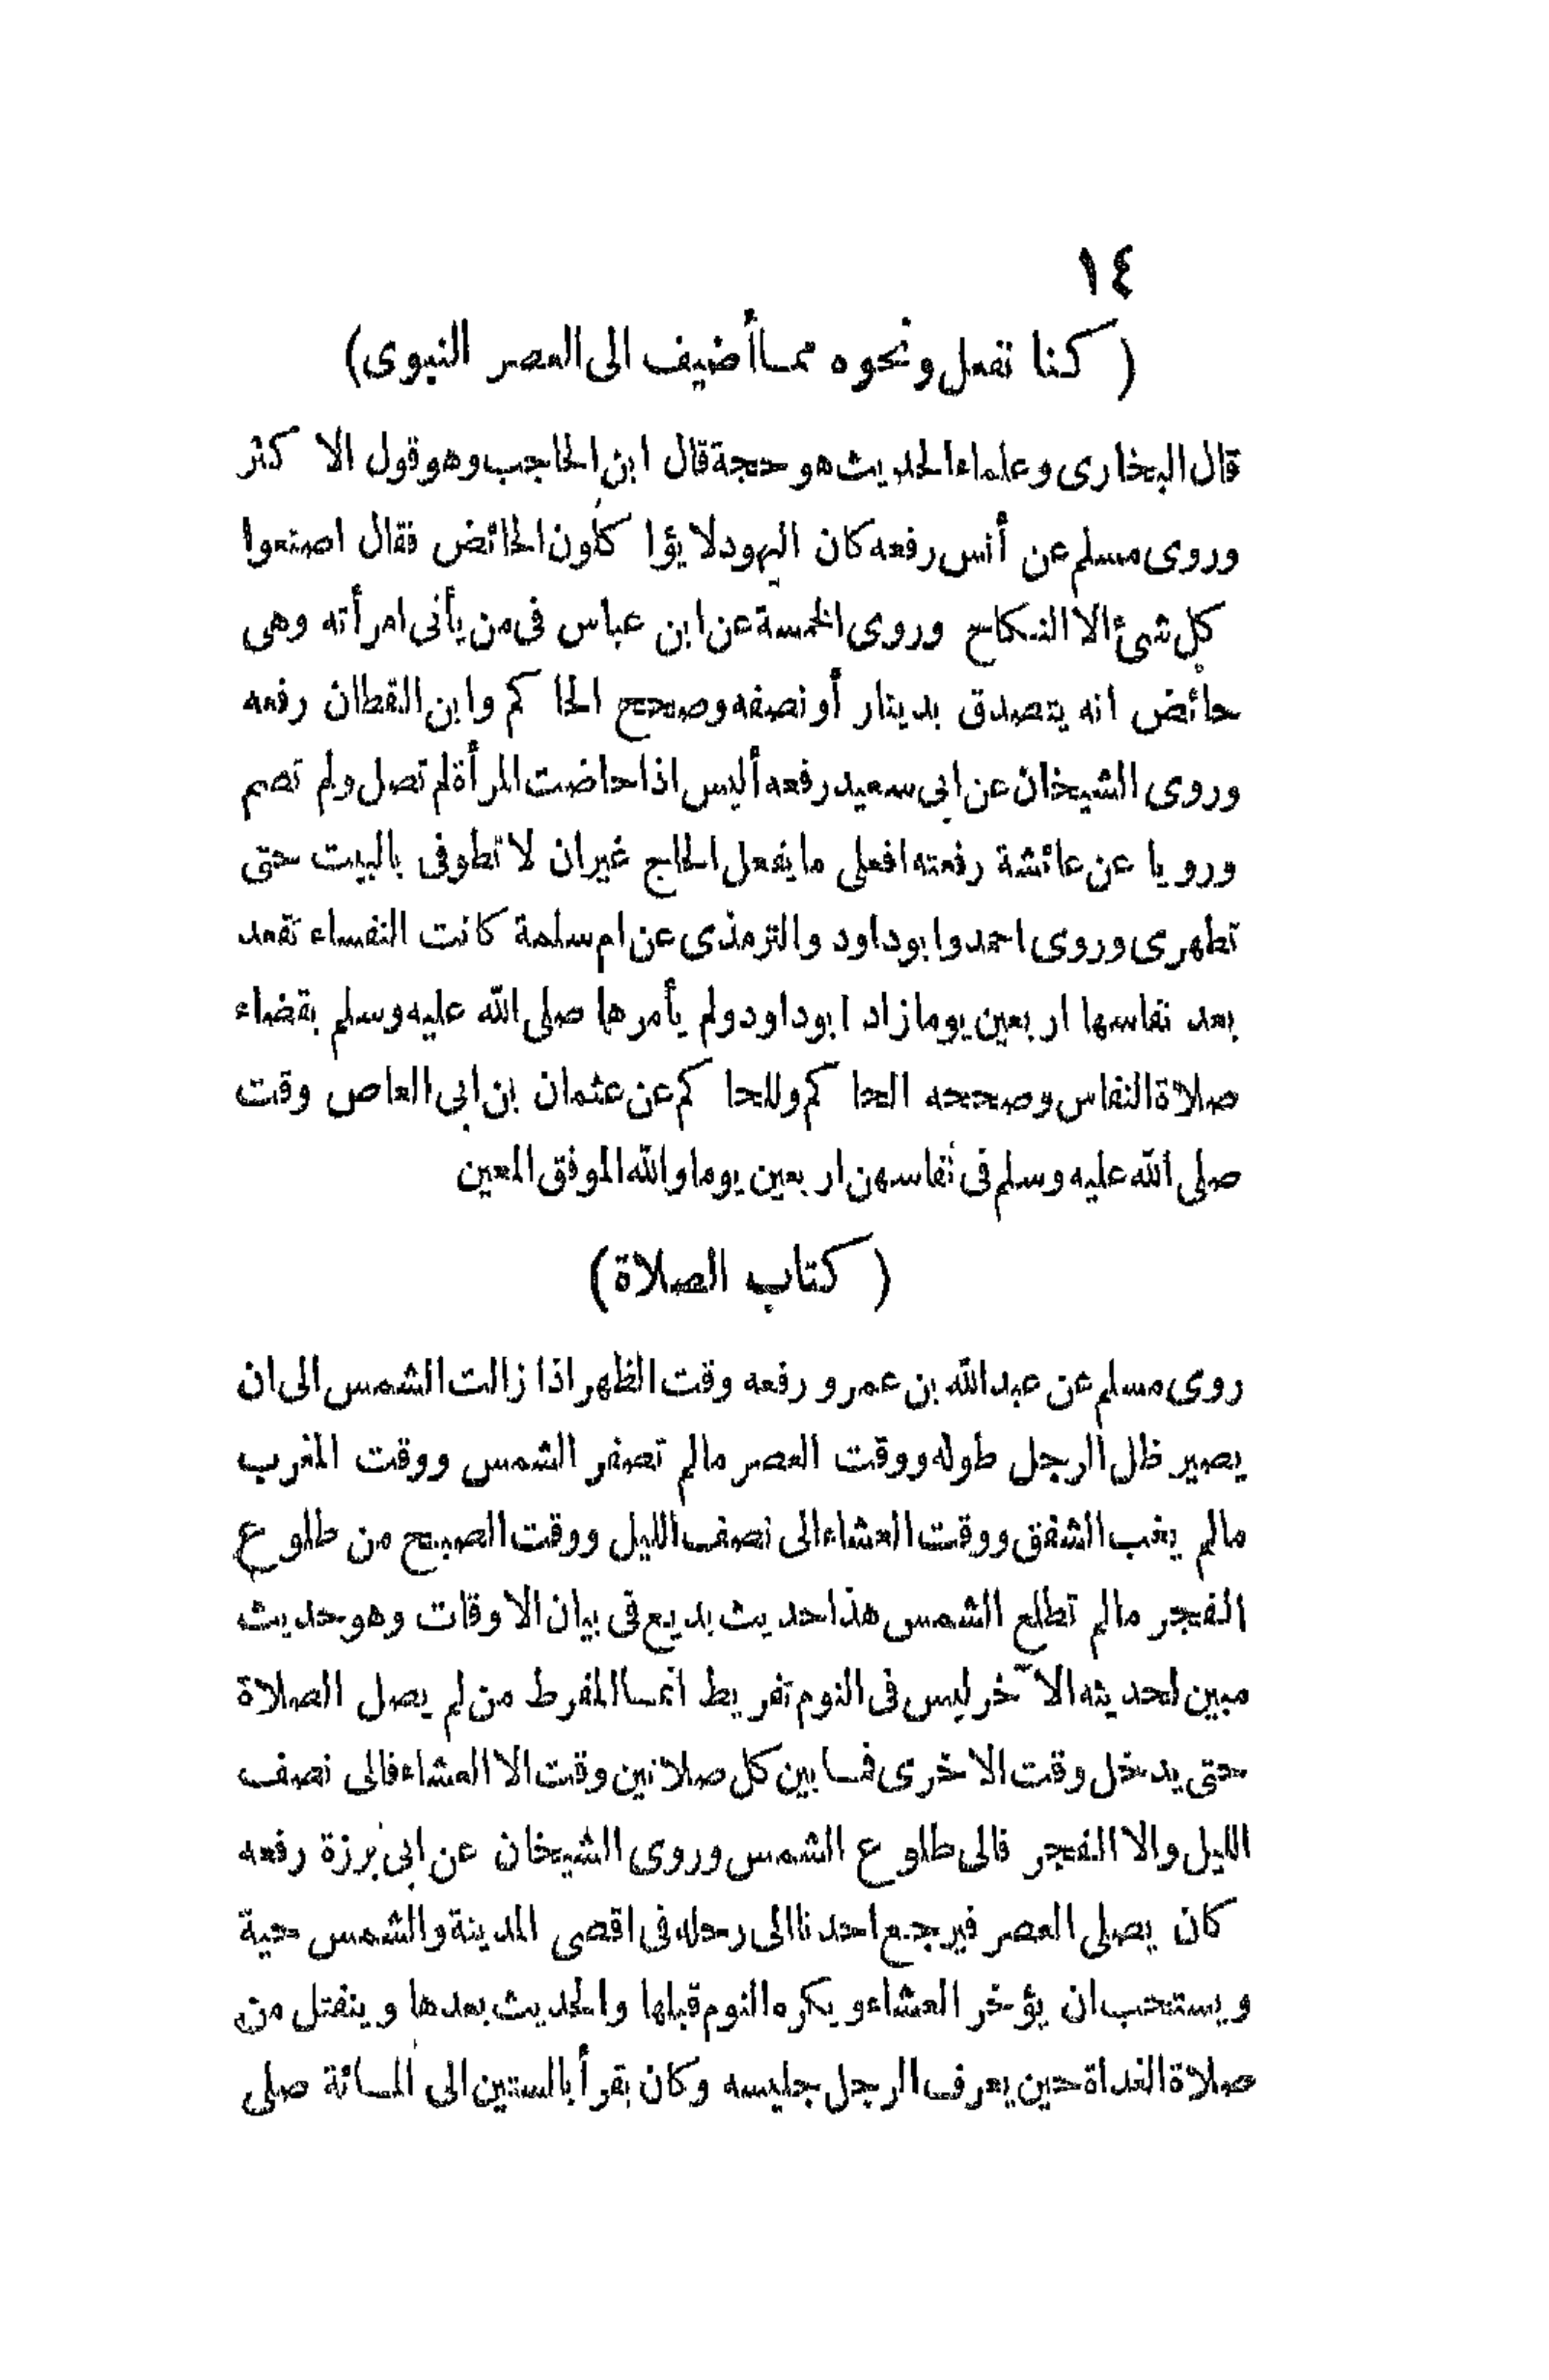 ١٤
( كنا نفعل ونحوه مما أضيف الى العصر النبوى)
قال البخارى وعلماء الحديث هو حجة قال ابن الحاجب وهو قول الاكثر
وروى مسلم عن أنس رفعه كان اليهود لا يؤاكلون الحائض فقال اصنعوا
كل شئ الا النكاح وروى الخمسة عن ابن عباس فى من يأتى امرأته وهى
حائض انه يتصدق بدينار أو نصفه وصحح الحاكم وابن القطان رفعه
وروى الشيخان عن ابى سعيد رفعه أليس اذا حاضت المرأة لم تصل ولم تصم
ورويا عن عائشة رفعته افعلى ما يفعل الحاج غير ان لا تطوفى بالبيت حتى
تطهرى وروى احمد وابوداود والترمذى عن ام سلمة كانت النفساء تقعد
بعد نفاسها اربعين يوما زاد ابوداود ولم يأمرها صلى الله عليه وسلم بقضاء
صلاة النفاس وصححه الحاكم وللحاكم عن عثمان بن ابى العاص وقت
صلى الله عليه وسلم فى نفاسهن اربعين يوما والله الموفق المعين
( كتاب الصلاة)
روى مسلم عن عبدالله بن عمرو رفعه وقت الظهر اذا زالت الشمس الى ان
يصير ظل الرجل طوله ووقت العصر مالم تصفر الشمس ووقت المغرب
مالم يغب الشفق ووقت العشاء الى نصف الليل ووقت الصبح من طلوع
الفجر مالم تطلع الشمس هذا حديث بديع فى بيان الاوقات وهو حديث
مبين لحديثه الآخر ليس فى النوم تفريط انما المفرط من لم يصل الصلاة
حتى يدخل وقت الاخرى فما بين كل صلاتين وقت الا العشاء فالى نصف
الليل والا الفجر فالى طلوع الشمس وروى الشيخان عن ابى برزة رفعه
كان يصلى العصر فيرجع احدنا الى رحله فى اقصى المدينة والشمس حية
ويستحب ان يؤخر العشاء ويكره النوم قبلها والحديث بعدها وينفتل من
صلاة الغداة حين يعرف الرجل جليسه وكان يقرأ بالستين الى المائة صلى